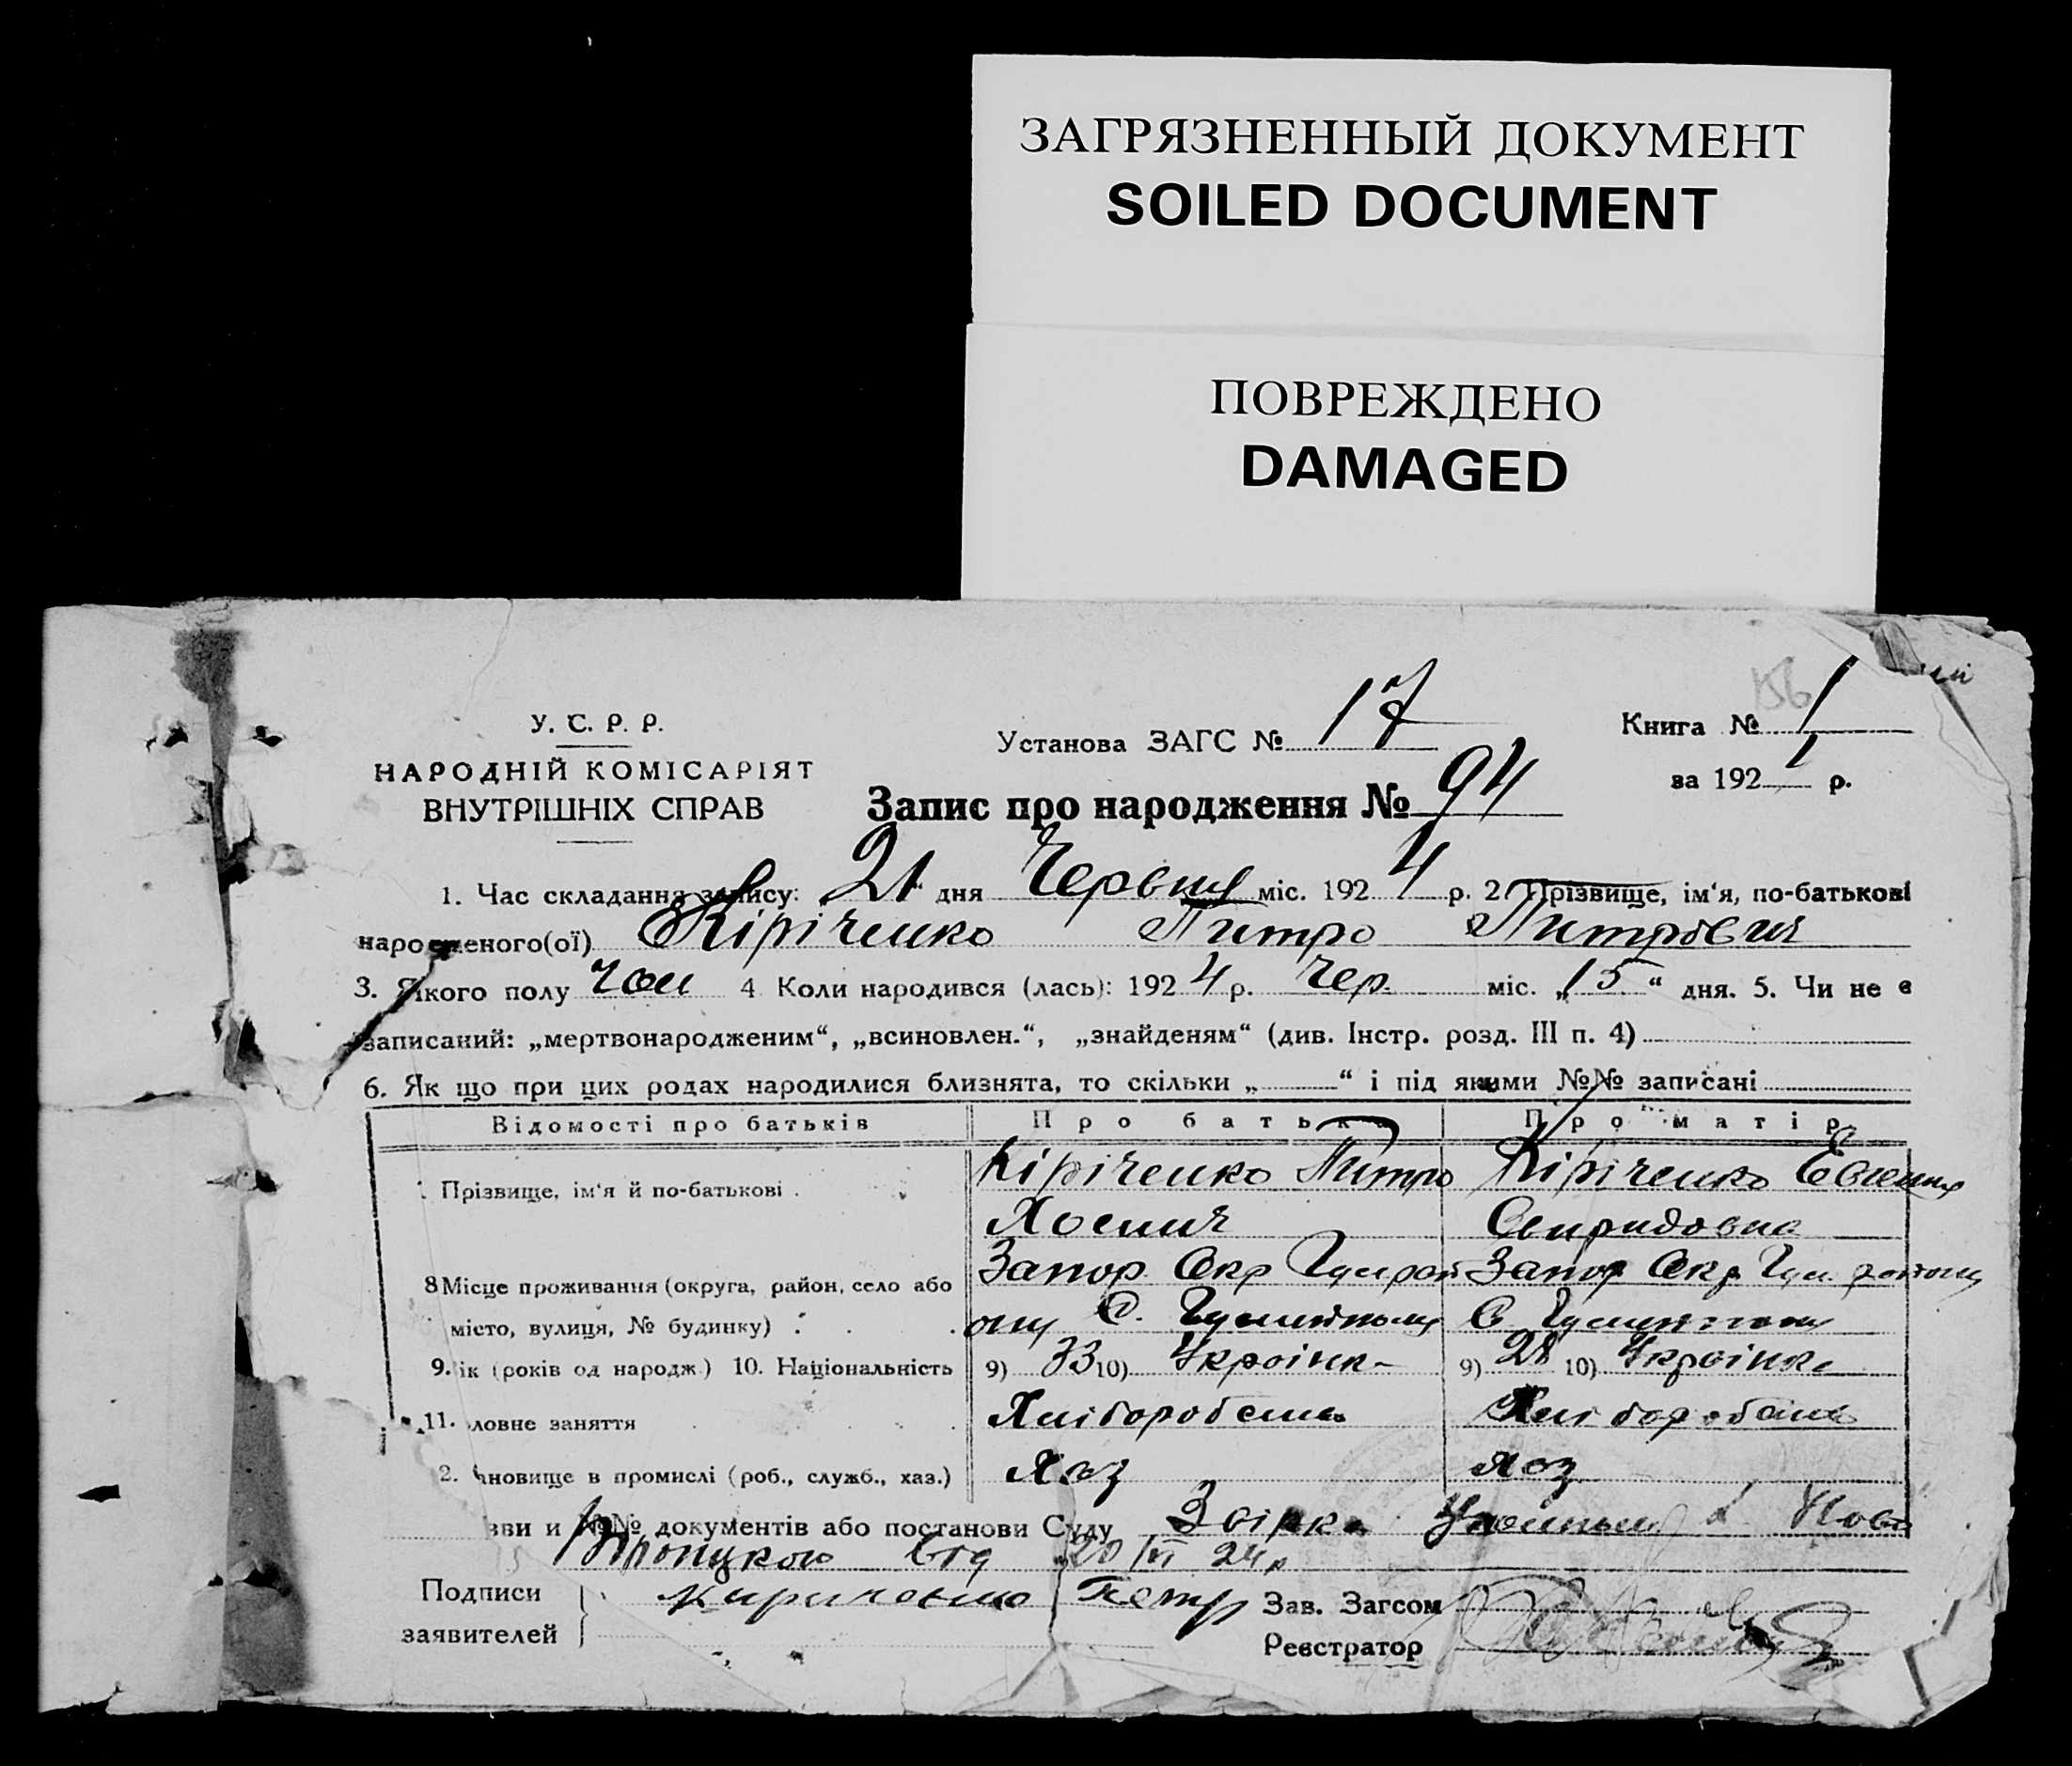 ЗАГРЯЗНЕННЫЙ ДОКУМЕНТ
SOILED DOCUMENT
ПОВРЕЖДЕНО
DAMAGED
156
У. С. Р. Р.
НАРОДНІЙ КОМІСАРІЯТ
ВНУТРІШНІХ СПРАВ
Установа ЗАГС № 17
Книга № 1
за 192 1 р.
Запис про народження № 94
1. Час складання запису: 21 " дня Червня міс. 192 4 р. 2. Прізвище, ім'я, по-батькові
народженого(ої) Кірі­ченко Питро Питрович
3. Якого полу чол 4 Коли народився (лась): 192 4 р. Чер. міс. „ 15 " дня. 5. Чи не є
записаний: „мертвонародженим", „всиновлен.", „знайденям" (див. Інстр. розд. III п. 4)
6. Як що при цих родах народилися близнята, то скільки „ " і під якими №№ записані
Відомості про батьків Про батька Про матір
Прізвище, ім'я й по-батькові Кіріченко Питро Кіріченко
Свиридовна
8 Місце проживання (округа, район, село або Запор Окр Запор Окр
місто, вулиця, № будинку) С. С
9. ік (років од народж.) 10. Національність 9) 33 10) Україн- 9) 28 10) Українка
11. ловне заняття Хліборобство Хліборобство
2. ановище в промислі (роб., служб., хаз.) Хаз Хаз
зви и №№ документів або постанови Суду
від 20/VI 24р
Подписи Кириченко Петр Зав. Загсом
заявителей Реєстратор